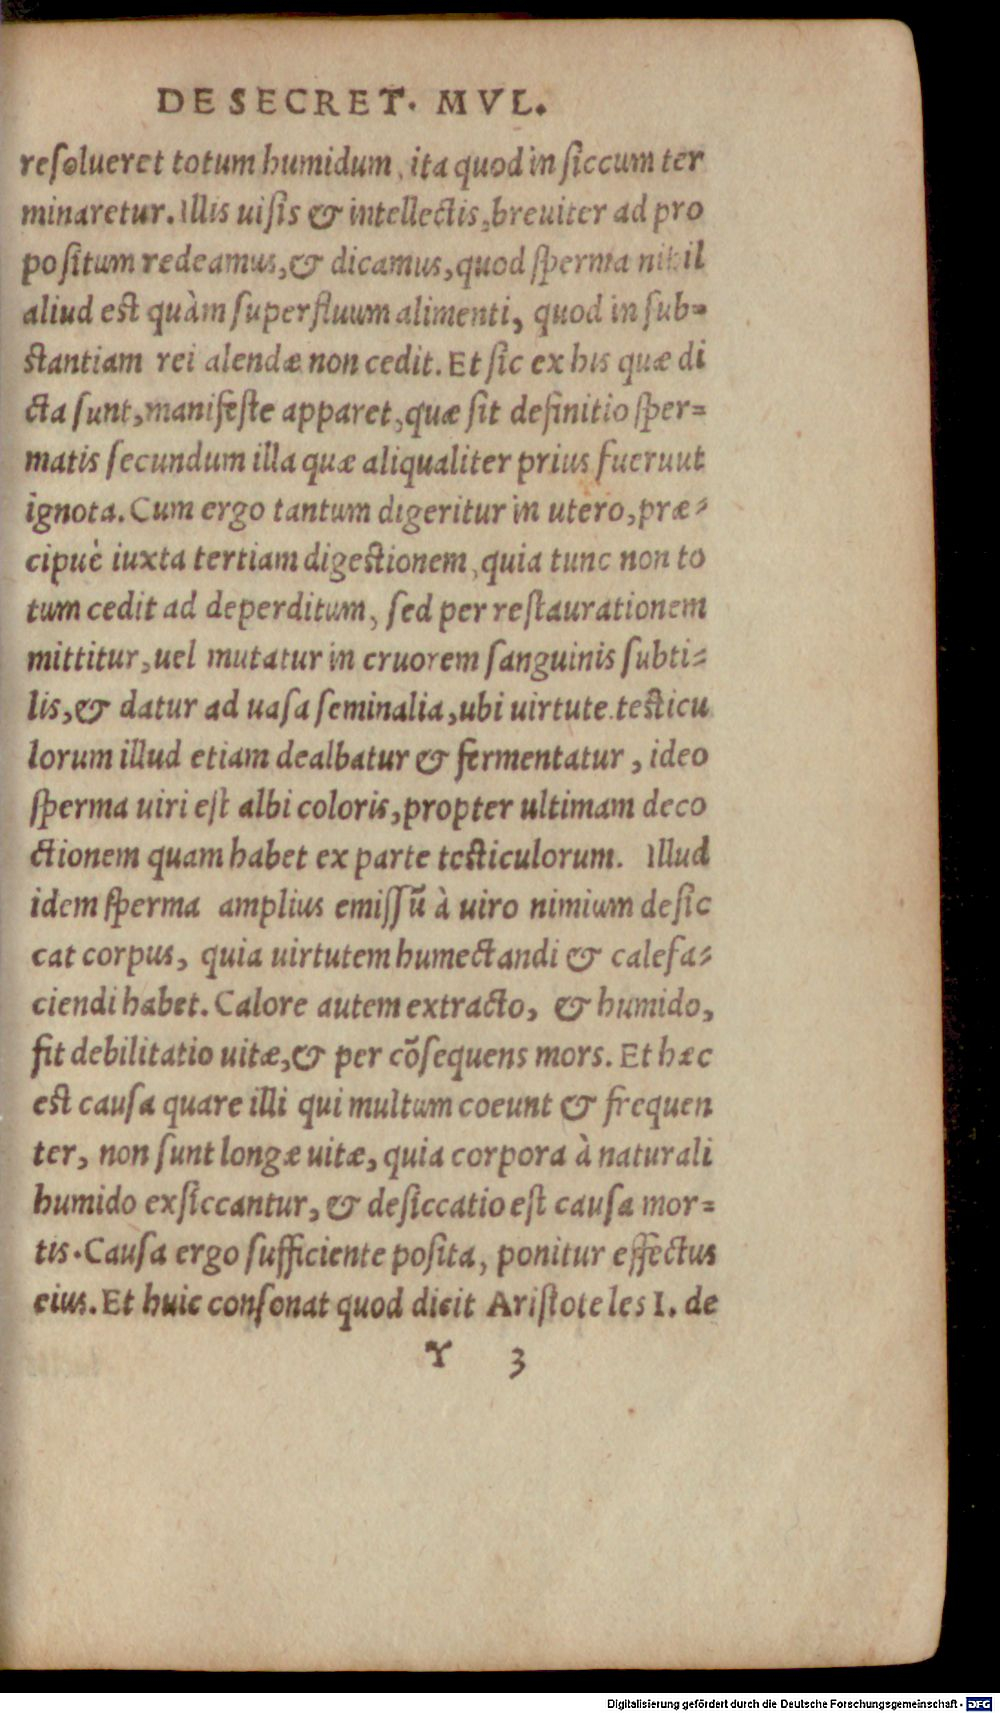 DE SECRET. MVL.
resolueret totum humidum, ita quod in siccum ter
minaretur. Illis uisis & intellectis, breuiter ad pro
positum redeamus, & dicamus, quod sperma nihil
aliud est quàm superfluum alimenti, quod in sub=
stantiam rei alendæ non cedit. Et sic ex his quæ di
cta sunt, manifeste apparet, quæ sit definitio sper=
matis secundum illa quæ aliqualiter prius fueruut
ignota. Cum ergo tantum digeritur in utero, præ=
cipuè iuxta tertiam digestionem, quia tunc non to
tum cedit ad deperditum, sed per restaurationem
mittitur, uel mutatur in cruorem sanguinis subti=
lis, & datur ad uasa seminalia, ubi uirtute testicu
lorum illud etiam dealbatur & fermentatur, ideo
sperma uiri est albi coloris, propter ultimam deco
ctionem quam habet ex parte testiculorum. Illud
idem sperma amplius emissũ à uiro nimium desic
cat corpus, quia uirtutem humectandi & calefa=
ciendi habet. Calore autem extracto, & humido,
fit debilitatio uitæ, & per cõsequens mors. Et hæc
est causa quare illi qui multum coeunt & frequen
ter, non sunt longæ uitæ, quia corpora à naturali
humido exsiccantur, & desiccatio est causa mor=
tis. Causa ergo sufficiente posita, ponitur effectus
eius. Et huic consonat quod dicit Aristoteles I. de
Y 3
Digitalisierung gefördert durch die Deutsche Forschungsgemeinschaft - DFG